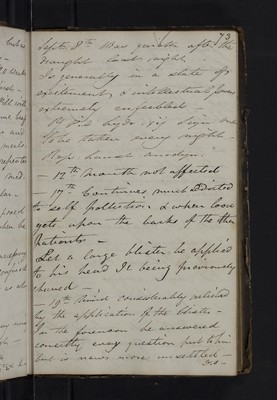 73
Sept. 8th Was quieter after the
draught last night
Is generally in a state of
excitement & intellectual powers
extremely enfeebled
to be taken every night —
Rep. haust anodyn.
— 12th Mouth not affected
— 17th Continues much addicted
to self pollution & when loose
gets upon the backs of the other
Patients —
Let a large blister be applied
to his head It being previously
shaved —
— 19th Mind considerably relieved
by the application of the blister —
In the forenoon he answered
correctly every question put to him
but is never more unsettled —